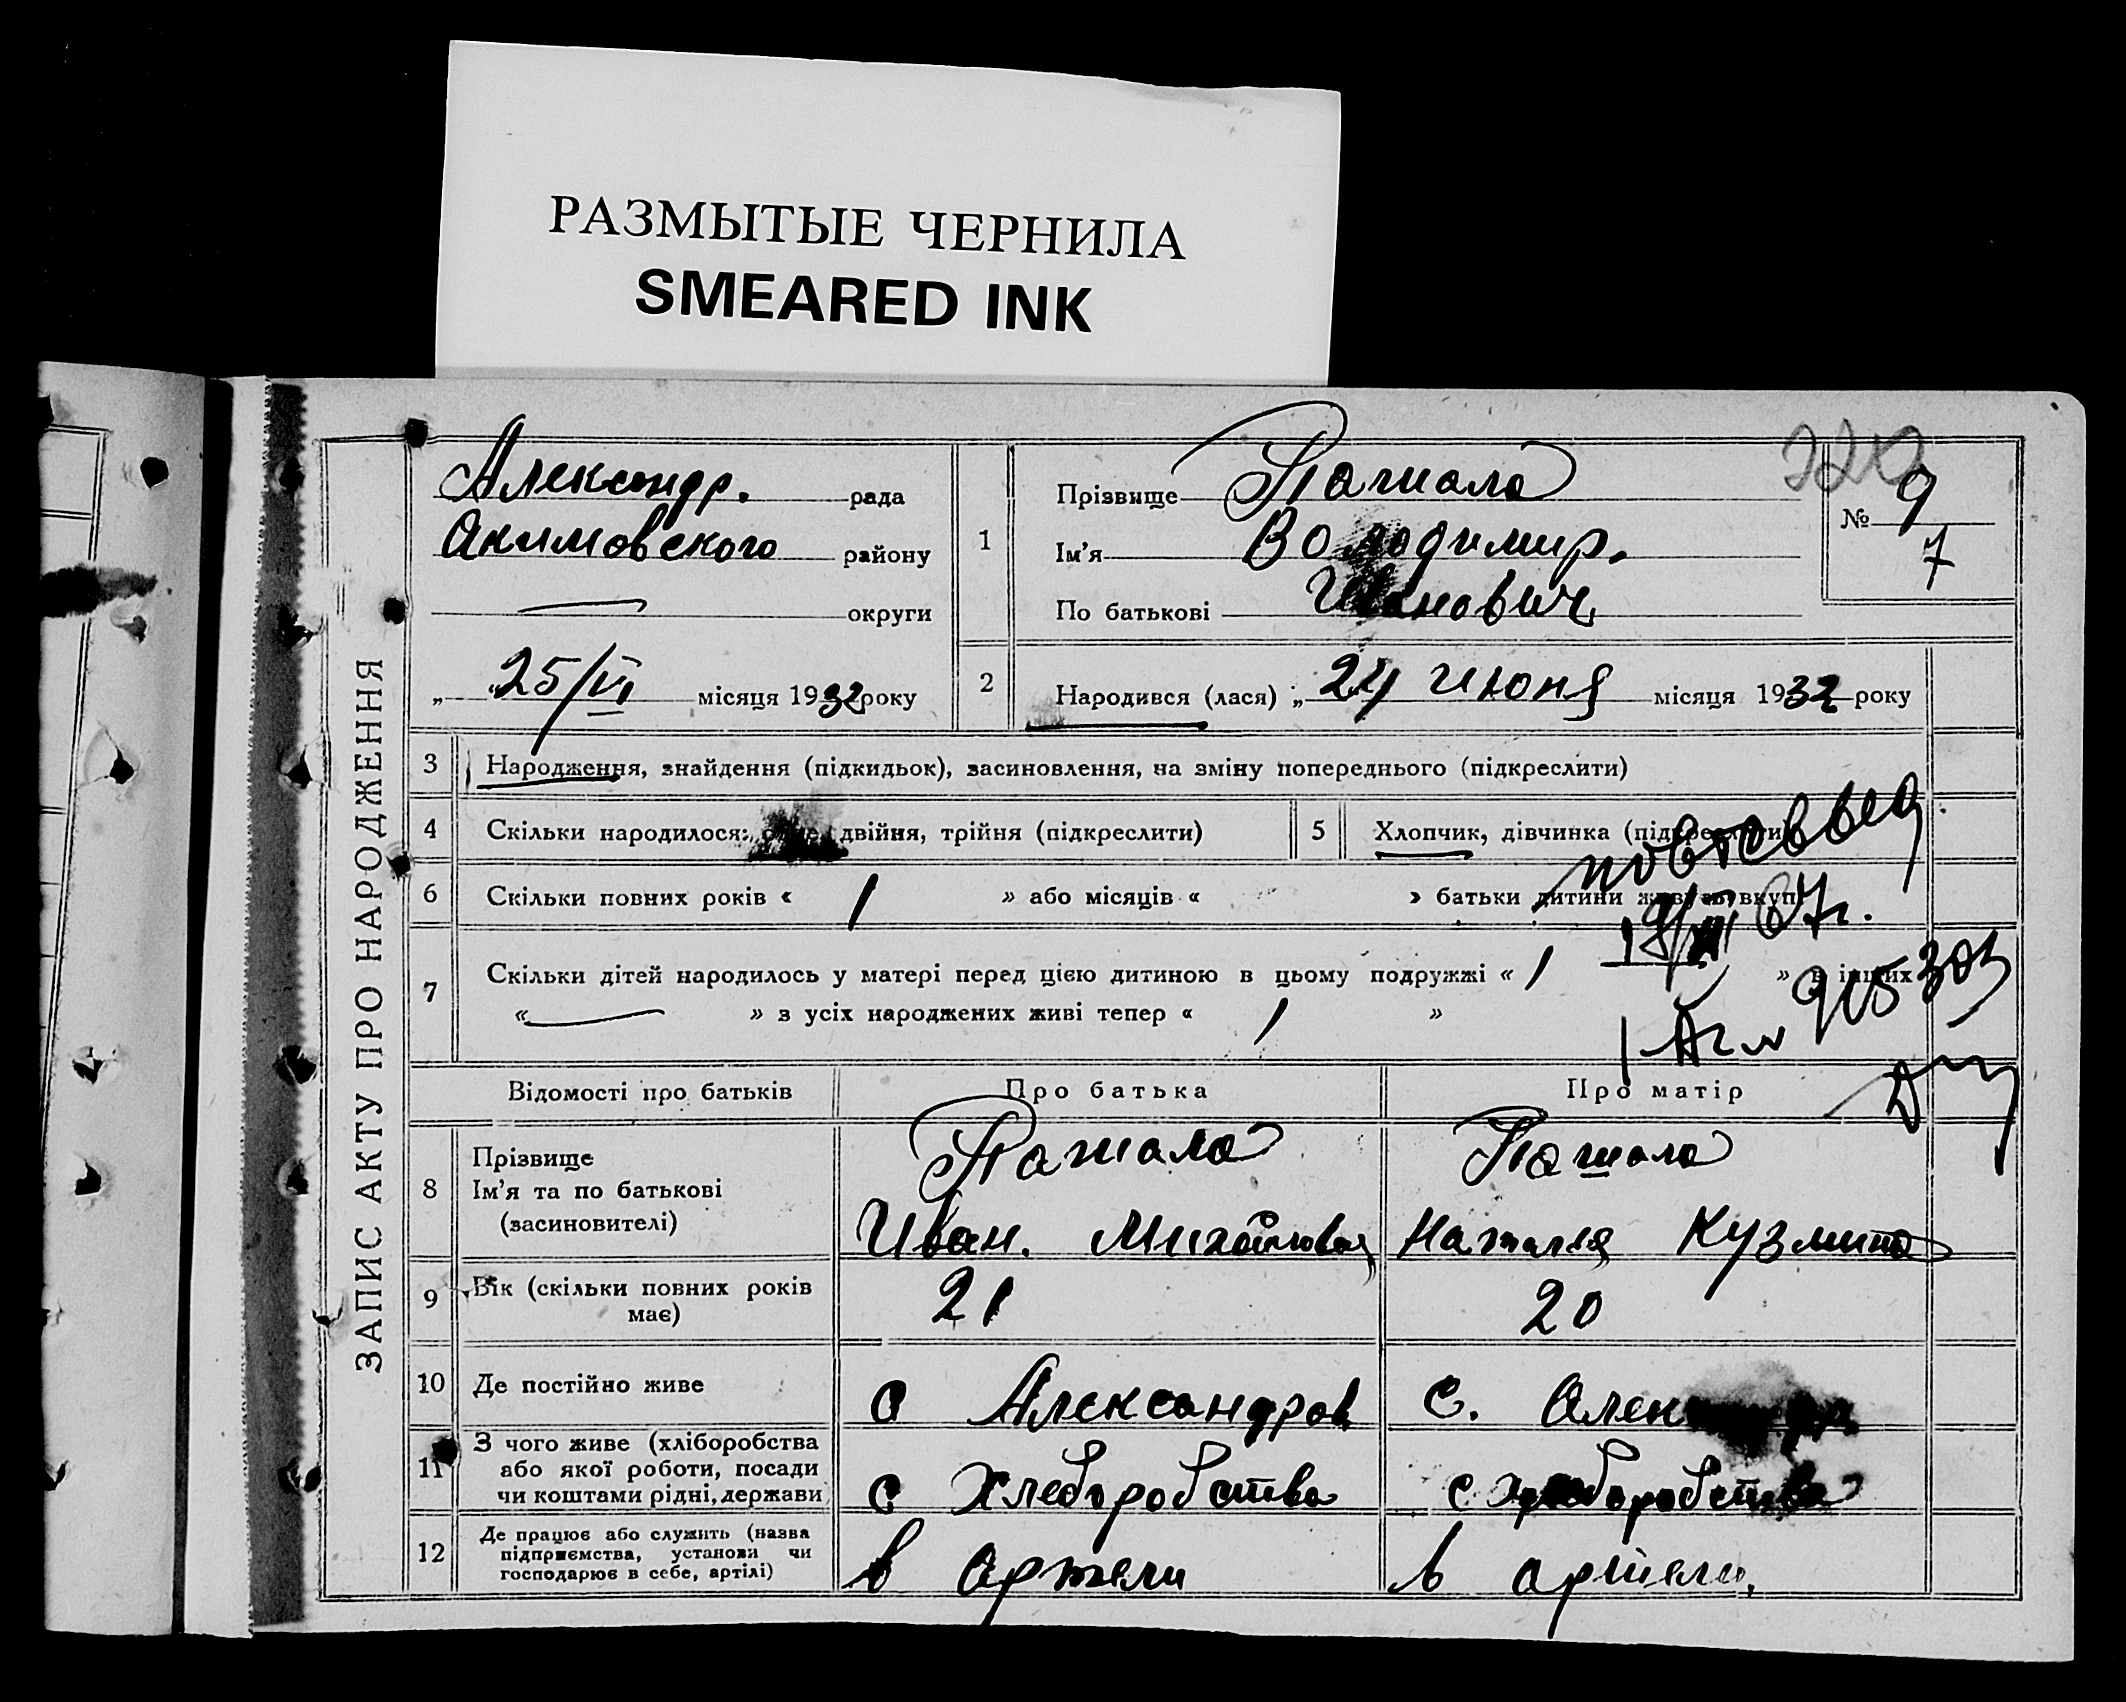 РАЗМЫТЫЕ ЧЕРНИЛА
SMEARED INK
ЗАПИС АКТУ ПРО НАРОДЖЕННЯ
Александр. рада
Акимовского району
округи
„ 25/VI місяця 1932 року
1
Прізвище
Ім’я Володимир.
По батькові Иванович
№ 9
7
2
Народився (лася) „ 24 июня місяця 1932 року
3 Народження, знайдення (підкидьок), засиновлення, на зміну попереднього (підкреслити)
4 Скільки народилося: двійня, трійня (підкреслити)
5 Хлопчик, дівчинка (підкреслити)
повт свыд
6 Скільки повних років « 1 » або місяців « » батьки дитини живуть вкупі
67 г.
7 Скільки дітей народилось у матері перед цією дитиною в цьому подружжі « 1 » в інших
« — » з усіх народжених живі тепер « 1 »
Відомості про батьків Про батька Про матір
8 Прізвище
Ім’я та по батькові
(засиновителі)
Иван. Михайлович
Наталия Кузмина
9 Вік (скільки повних років має) 21 20
10 Де постійно живе с Александров с. Александр
11 З чого живе (хліборобства
або якої роботи, посади
чи коштами рідні, держави
с Хлеборобства с хлеборобства
12 Де працює або служить (назва
підприємства, установи чи
господарює в себе, артілі)
в артели в артели.